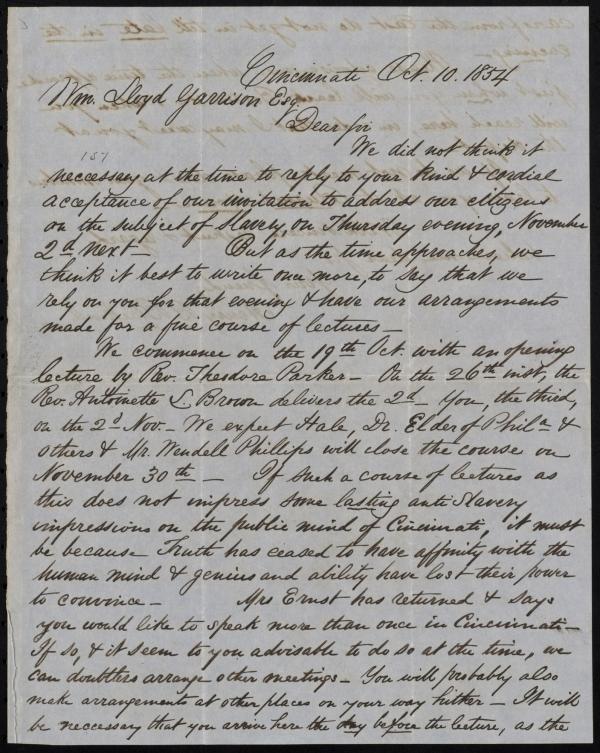 Cincinnati Oct. 10. 1854
Wm. Lloyd Garrison Esq.
Dear Sir
157
We did not think it
neccessary at the time to reply to your kind & cordial
acceptance of our invitation to address our citizens
on the subject of Slavery, on Thursday evening, November
2d next — But as the time approaches, we
think it best to write once more, to say that we
rely on you for that evening & have our arrangements
made for a fine course of lectures —
We commence on the 19th Oct. with an opening
lecture by Rev. Theodore Parker — On the 26th inst, the
Rev. Antoinette L. Brown delivers the 2d — You, the third,
on the 2d Nov. — We expect Hale, Dr. Elder of Phila &
others & Mr. Wendell Phillips will close the course on
November 30th — If such a course of lectures as
this does not impress some lasting anti Slavery
impressions on the public mind of Cincinnati, it must
be because Truth has ceased to have affinity with the
human mind & genius and ability have lost their power
to convince — Mrs Ernst has returned & says
you would like to speak more than once in Cincinnati —
If so, & it seem to you advisable to do so at the time, we
can doubtless arrange other meetings — You will probably also
make arrangements at other places on your way hither — It will
be necessary that you arrive here the day before the lecture, as the